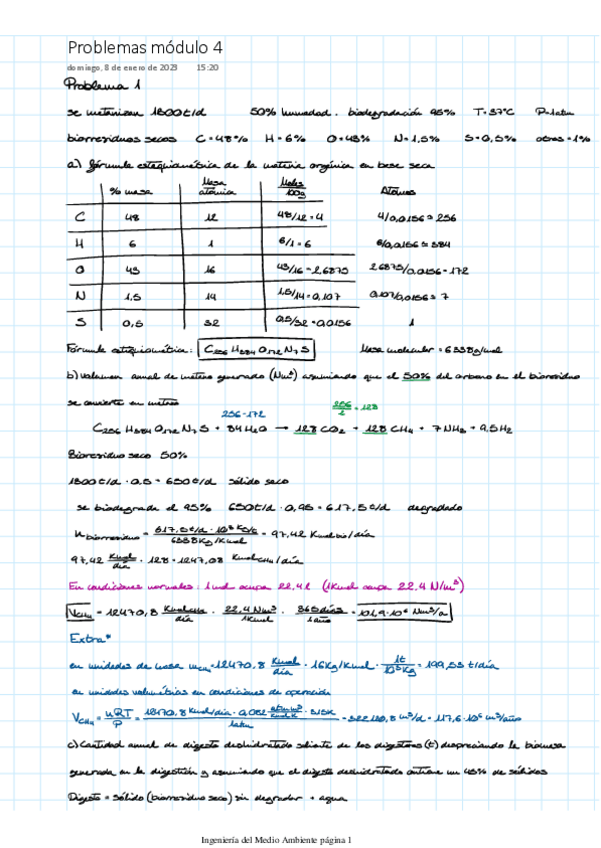 Problemas módulo 4
domingo, 8 de enero de 2023 15:20
Problema 1
se metanizan 1300t/d 50% humedad. biodegradación 95% T=37ºC P=1atm
biorresiduos secos C=48% H=6% O=43% N=1,5% S=0,5% otros=1%
a) fórmula estequiométrica de la materia orgánica en base seca
% masa Masa atómica Moles/100g Átomos
C 48 12 48/12=4 4/0,0156=256
H 6 1 6/1=6 6/0,0156=384
O 43 16 43/16=2,6875 2,6875/0,0156=172
N 1,5 14 1,5/14=0,107 0,107/0,0156=7
S 0,5 32 0,5/32=0,0156 1
Fórmula estequiométrica: C256 H384 O172 N7 S Masa molecular=6338g/mol
b) Volumen anual de metano generado (Nm³) asumiendo que el 50% del carbono en el biorresiduo
se convierte en metano
256-172 256/2=128
C256 H384 O172 N7 S + 84H2O → 128CO2 + 128CH4 + 7NH3 + 9,5H2
Biorresiduo seco 50%
1300t/d·0,5=650t/d sólido seco
se biodegrada el 95% 650t/d·0,95=617,5t/d degradado
n biorresiduo = 617,5t/d·10³Kg/t / 6338Kg/Kmol = 97,42 Kmol bio/día
97,42 Kmol/día · 128=1247,08 Kmol CH4/día
En condiciones normales: 1mol ocupa 22,4l (1Kmol ocupa 22,4 N/m³)
VCH4 = 12470,8 Kmol CH4/día · 22,4 Nm³/1Kmol · 365días/1año = 101,9·10⁶ Nm³/a
Extra*
en unidades de masa mCH4=12470,8 Kmol/día · 16Kg/Kmol · 1t/10³Kg = 199,53 t/día
en unidades volumétricas en condiciones de operación
VCH4 = nRT/P = 12470,8 Kmol/día·0,082 atm m³/Kmol K·315K / 1atm = 322120,8 m³/d = 117,6·10⁶ m³/año
c) Cantidad anual de digesto deshidratado saliente de los digestores (t) despreciando la biomasa
generada en la digestión y asumiendo que el digesto deshidratado contiene un 45% de sólidos
Digesto = sólido (biorresiduo seco) sin degradar + agua
Ingeniería del Medio Ambiente página 1